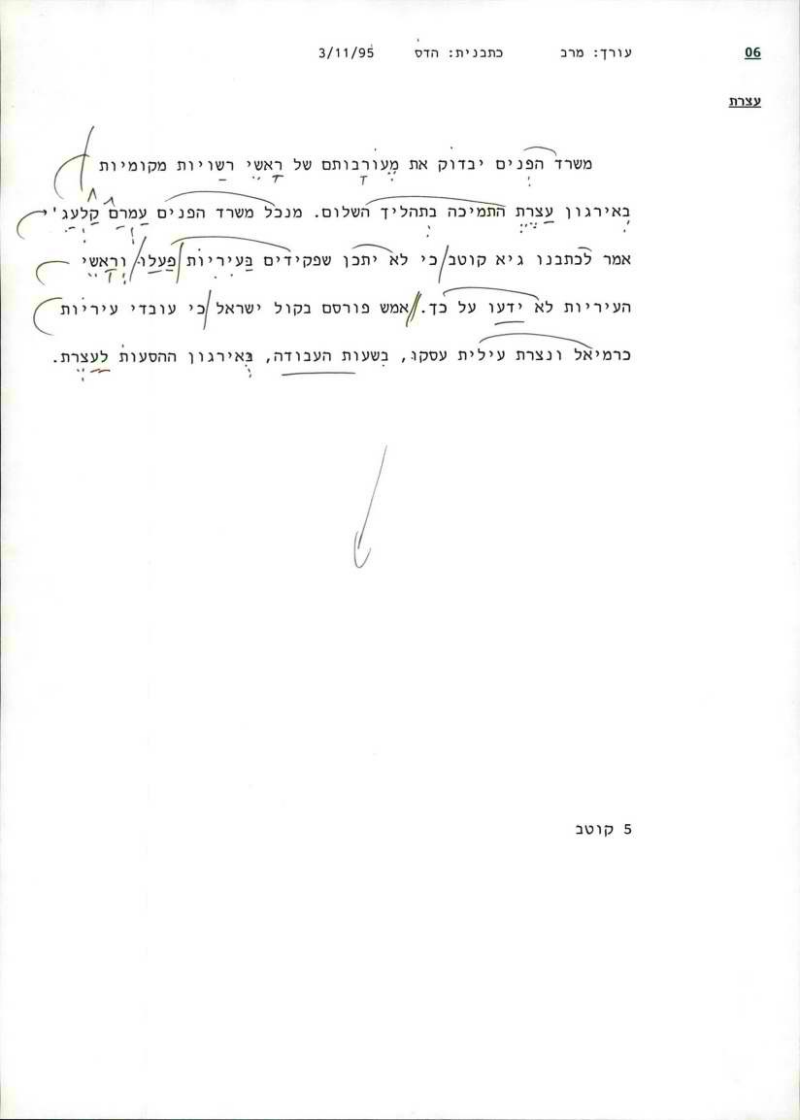 06 עורך: מרב כתבנית: הדס 3/11/95
עצרת
משרד הפנים יבדוק את מעורבותם של ראשי רשויות מקומיות
באירגון עצרת התמיכה בתהליך השלום. מנכל משרד הפנים עמרם קלעג'י
אמר לכתבנו גיא קוטב כי לא יתכן שפקידים בעיריות פעלו וראשי
העיריות לא ידעו על כך. אמש פורסם בקול ישראל כי עובדי עיריות
כרמיאל ונצרת עילית עסקו, בשעות העבודה, באירגון ההסעות לעצרת.
5 קוטב